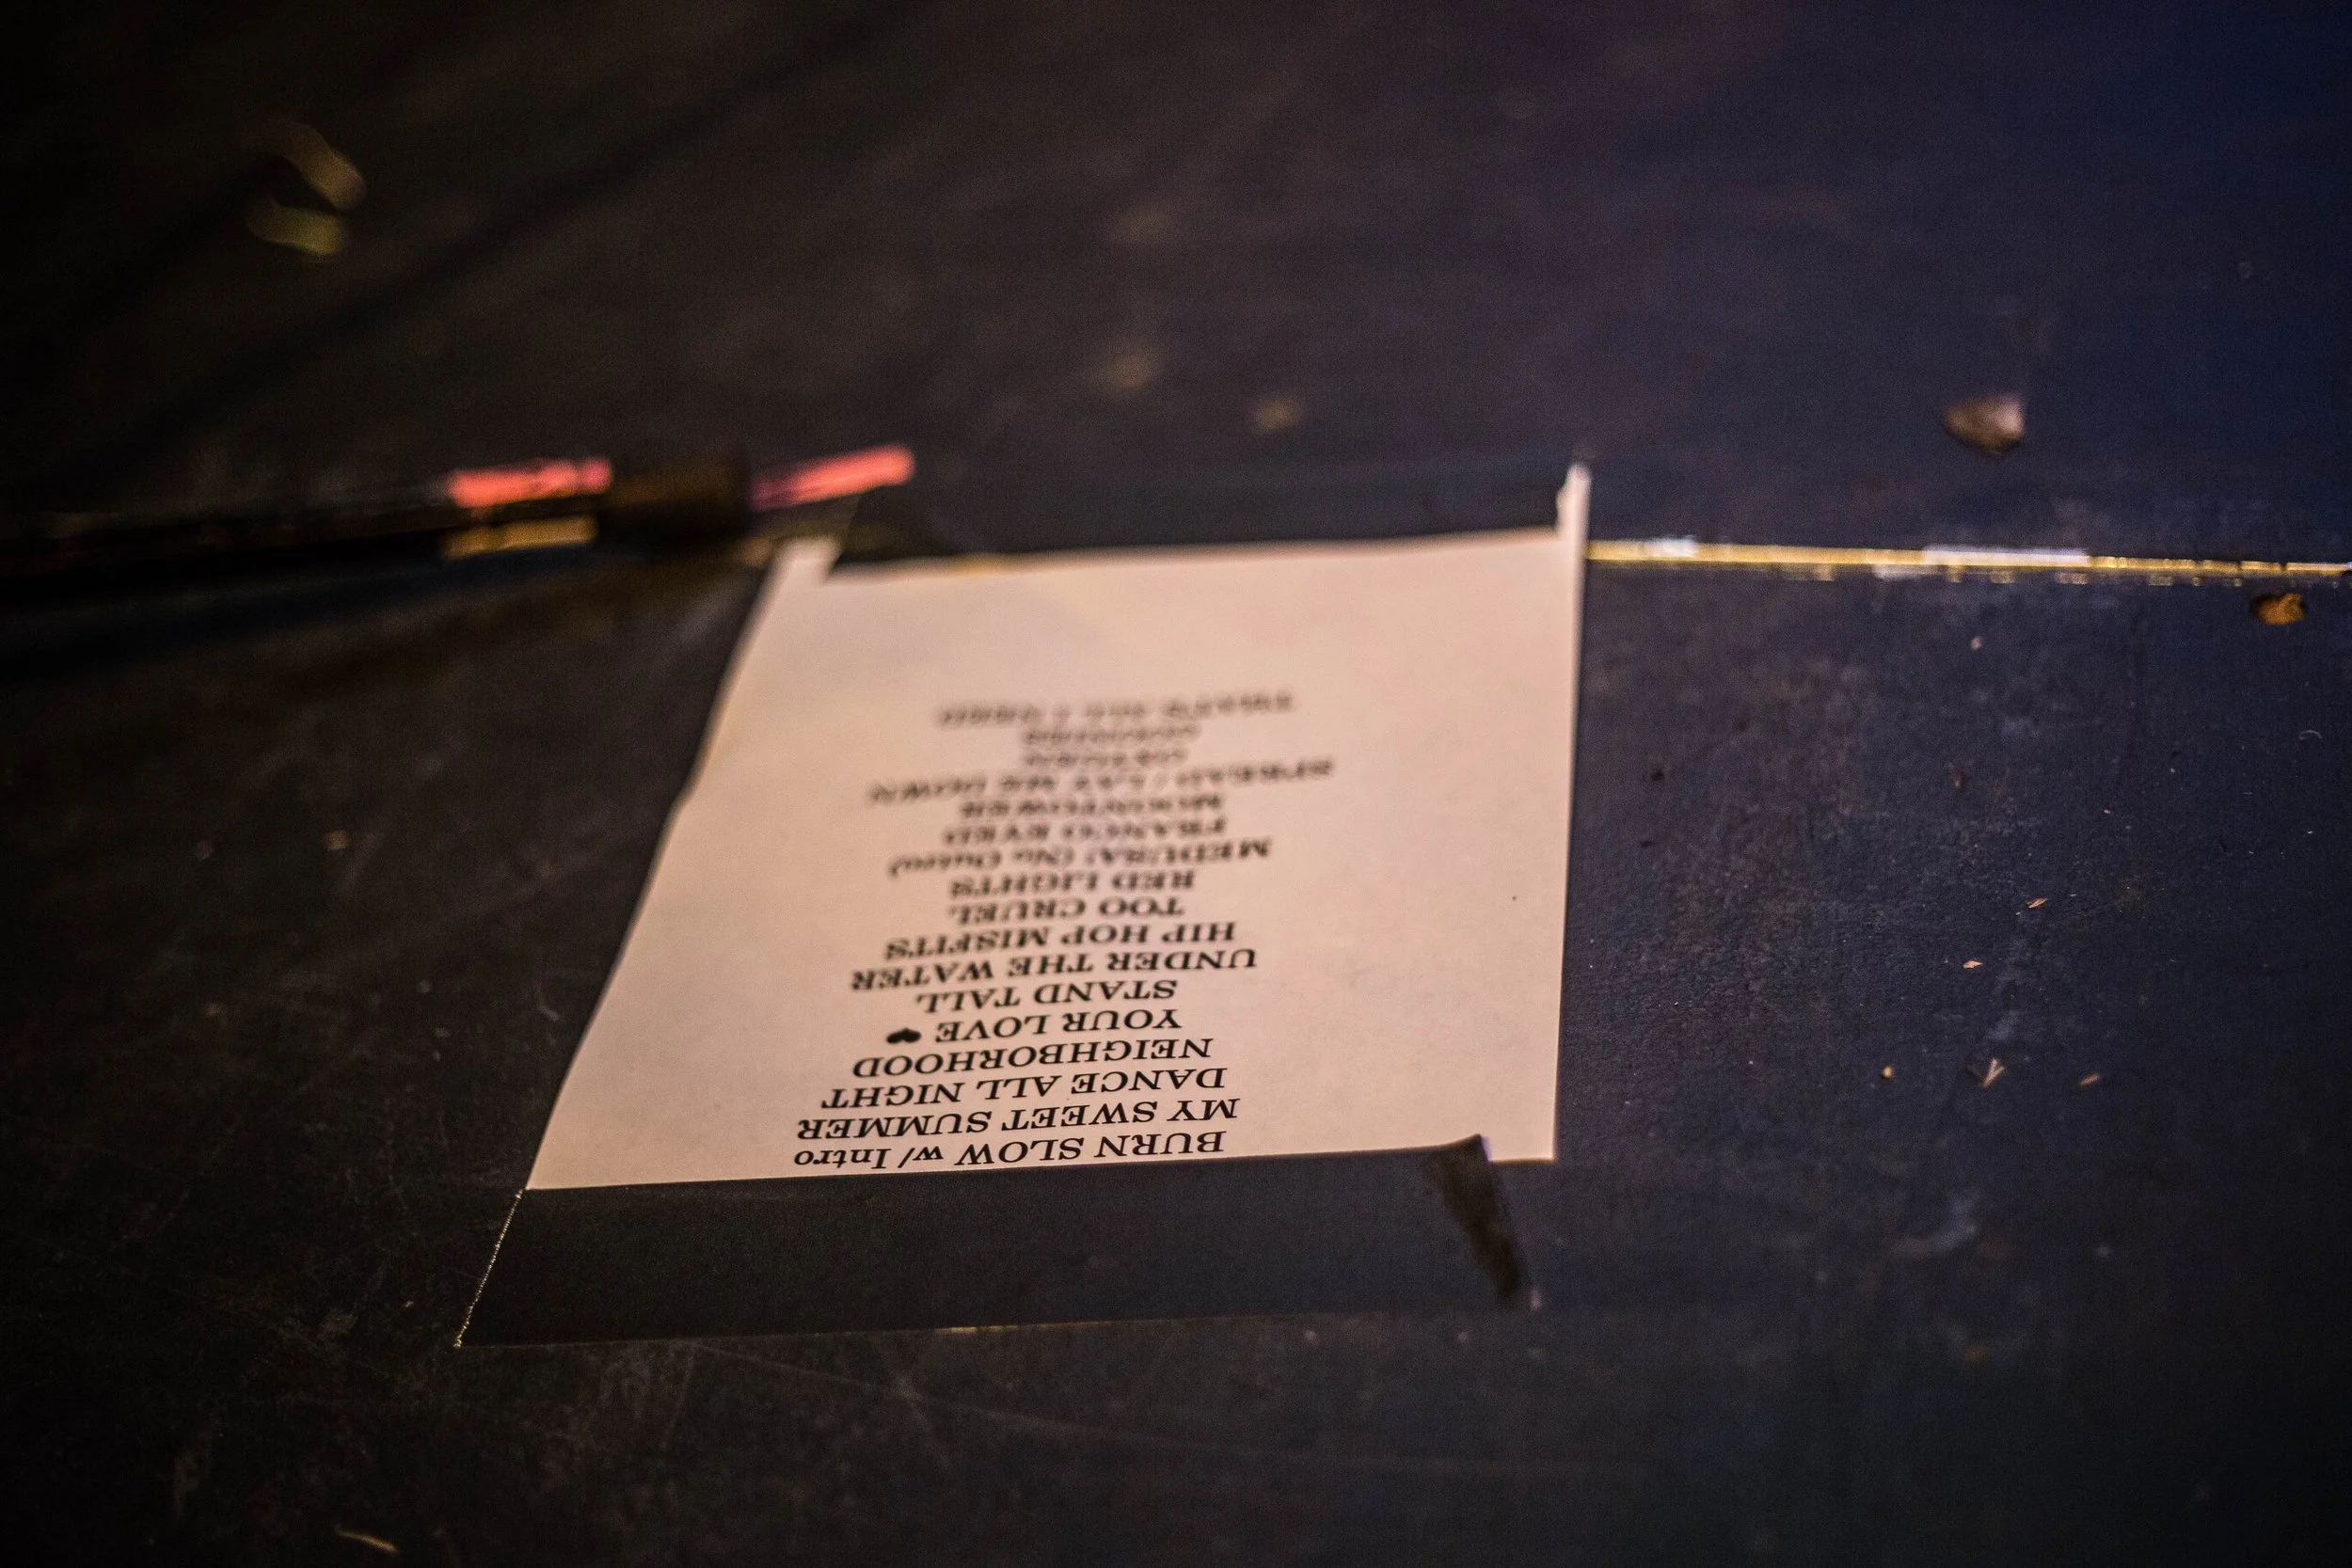 BURN SLOW w/ Intro
MY SWEET SUMMER
DANCE ALL NIGHT
NEIGHBORHOOD
YOUR LOVE ♥
STAND TALL
UNDER THE WATER
HIP HOP MISFITS
TOO CRUEL
RED LIGHTS
MEDUSA! (No Outro)
FRANCO EYED
MOONTOWER
SPREAD / LAY ME DOWN
THAT'S ALL I NEED